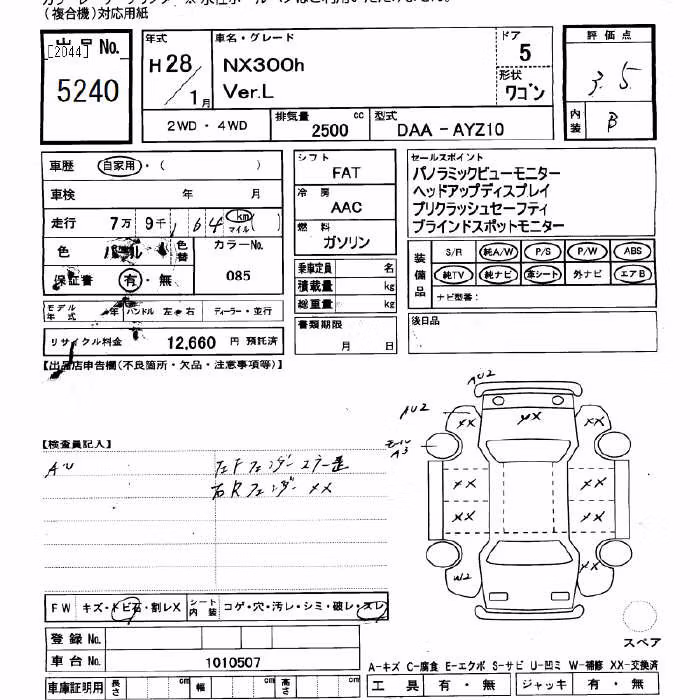 (複合機)対応用紙
出品 No.
[2044]
5240
年式
H28/1月
車名・グレード
NX300h
Ver.L
ドア
5
形状
ワゴン
評価点
3.5
内装
B
2WD・4WD
排気量
2500 cc
型式
DAA-AYZ10
車歴 自家用・( )
車検 年 月
走行 7万 9千 164 km マイル ( )
色 パール 色替 カラーNo.
085
保証書 有・無
モデル年式 年 ハンドル 左・右 ディーラー・並行
リサイクル料金 12,660 円 預託済
シフト
FAT
冷房
AAC
燃料
ガソリン
乗車定員 名
積載量 kg
総重量 kg
書類期限
月 日
セールスポイント
パノラミックビューモニター
ヘッドアップディスプレイ
プリクラッシュセーフティ
ブラインドスポットモニター
装備品
S/R 純A/W P/S P/W ABS
純TV 純ナビ 革シート 外ナビ エアB
ナビ型番:
後日品
【出品店申告欄(不良箇所・欠品・注意事項等)】
【検査員記入】
AU
右Rフェンダー XX
AU2
AU2
モール
A3
XX
XX
XX
XX
XX
XX
XX
XX
W2
FW キズ・トビ石・割レX シート内装 コゲ・穴・汚レ・シミ・破レ・スレ
登録 No.
車台 No. 1010507
車庫証明用 長さ cm 幅 cm 高さ cm
スペア
A-キズ C-腐食 E-エクボ S-サビ U-凹ミ W-補修 XX-交換済
工具 有・無 ジャッキ 有・無